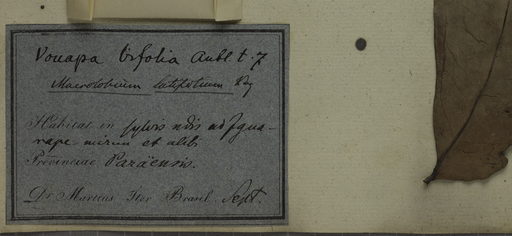 Vouapa bifolia Aubl t. 7
Macrolobium latifolium
Habitat in sylvis ad Igua-
rape-mirim et alib
Provinciae Paraënsis.
Dr. Martius Iter Brasil. Sept.